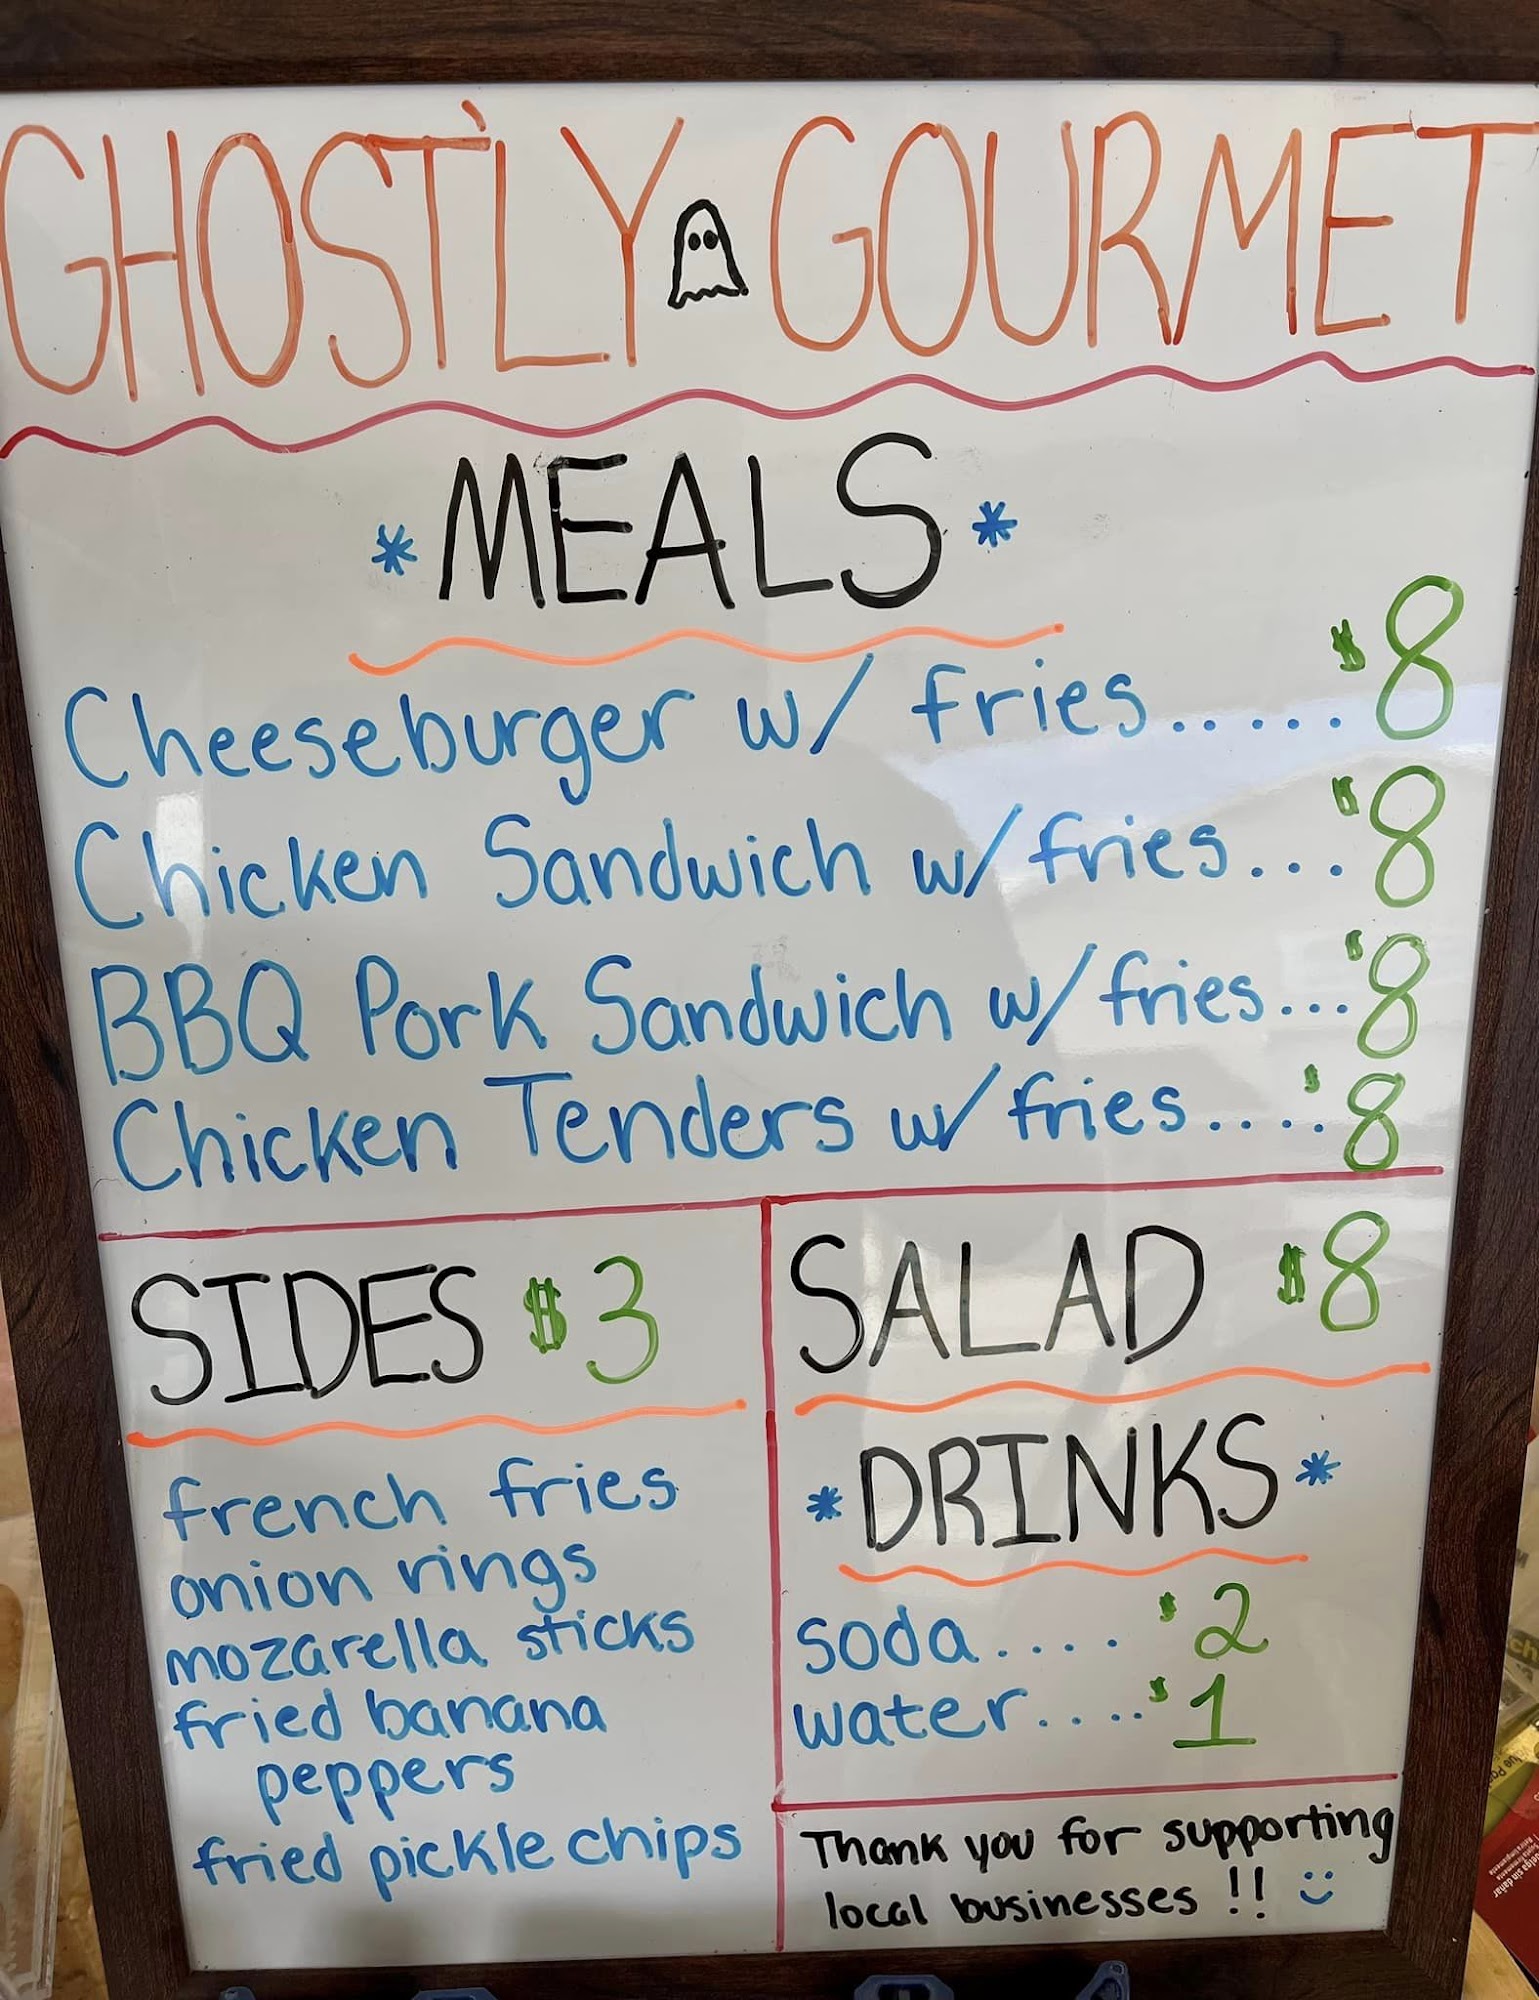 GHOSTLY GOURMET
* MEALS *
Cheeseburger w/ fries..... $8
Chicken Sandwich w/ fries... $8
BBQ Pork Sandwich w/ fries... $8
Chicken Tenders w/ fries.... $8
SIDES $3
french fries
onion rings
mozarella sticks
fried banana
peppers
fried pickle chips
SALAD $8
* DRINKS *
soda.... $2
water.... $1
Thank you for supporting
local businesses !! :)